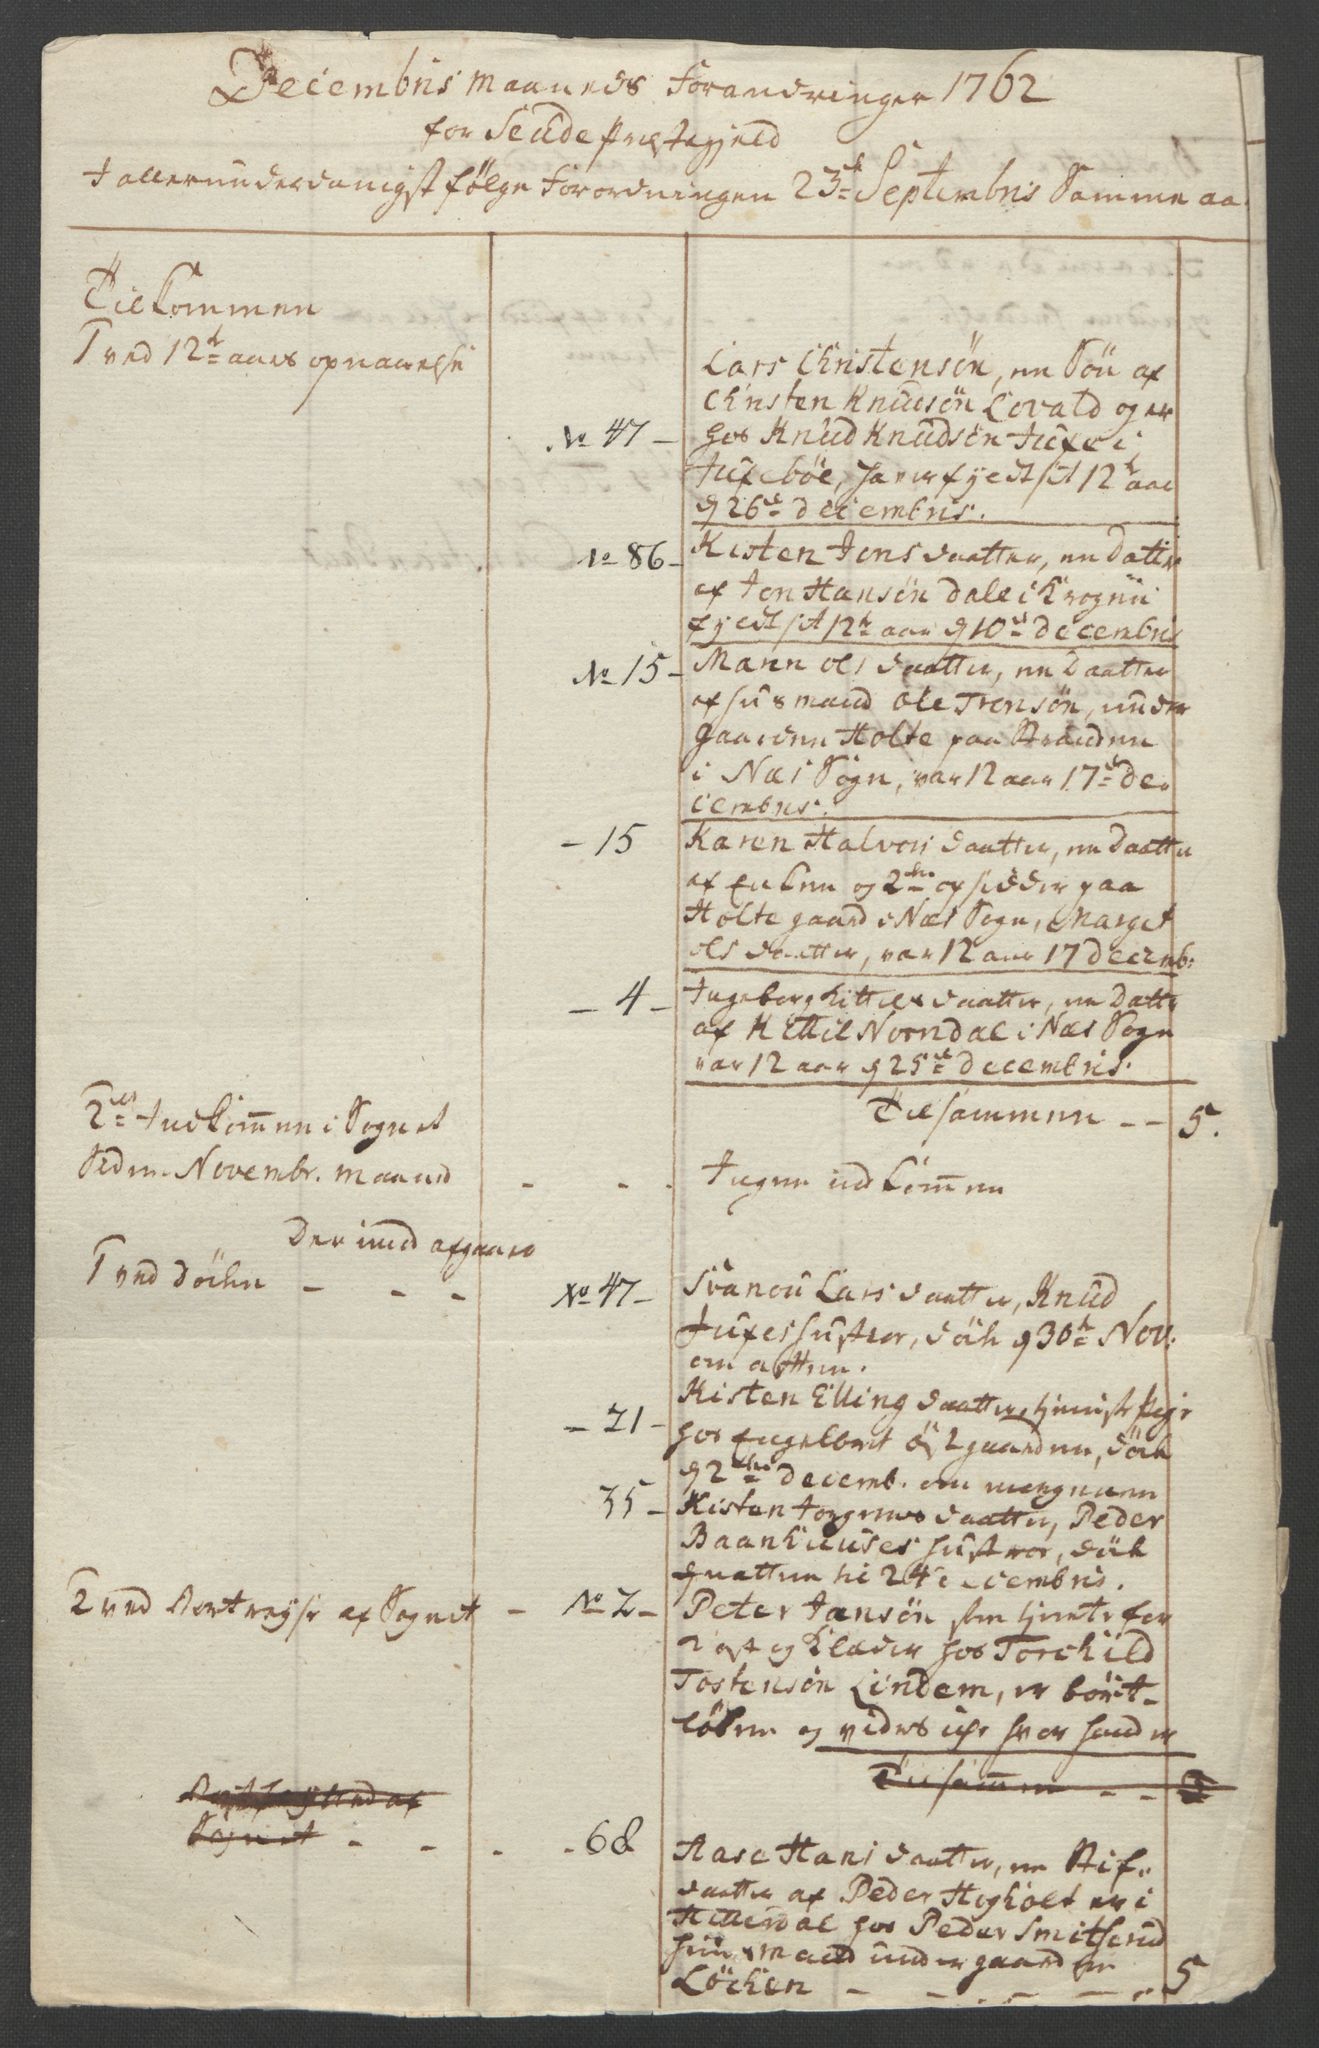 Decembris Maaneds Forandringer 1762
for Seude Præstegield
I allerunderdanigst følge Forordningen 23de Septembris Samme aa
Tilkommen
1 ved 12te aars opnaaelse
Lars Christensön, en Sön af
Christen Knudsön Lovald og er
No 47 - hos Knud Knudsön Jufe i
Jufebøe, har opfyldt sit 12te aar
d 26de Decembris.
No 86 - Kisten Jons daatter, en datter
af Jon Hansön Dale i
fyldt sit 12te aar d 10de Decembris
No 15 - Maren Ols daatter, en Daatter
af Huusmand Ole Tronsön, under
Gaarden Holte paa Stranden
i Næs Sogn, var 12 aar 17de De-
cembris.
- 15 Karen Halvors daatter, en Daatter
af Enken og 2den opsidder paa
Holte gaard i Næs Sogn, Marget
Ols daatter, var 12 aar 17 Decemb:
- 4 - Ingeborg Kittels daatter, en Datter
af Kittil Norndal i Næs Sogn
var 12 aar d 25de Decembris.
Tilsammen - - 5.
2det Indkommen i Sognet
Siden Novembr. Maaned - - - Ingen indkommen
Der imod afgaaet
1 ved döden - - - No 47 - Svanou Lars daatter, Knud
Jufes hustroe, döde d 30te Nov.
om aftten.
- 21 - Kisten Elling daatter, tieniste Pige
hos Engelbret Östgaarden, döde
d 2den Decemb. om morgenen
35 - Kisten Jorgens daatter, Peder
Baankaases hustroe, döde
natten til 24de Decembris.
2 ved Bortreyse af Sognet - No 2 - Peter Jansön som tiente for
Kost og Klæder hos Torchild
Tostensön Lindem, er bort-
löben og vides ikke hvor hand er
Tilsammen - -
Sognet - - - - 68 Aase Hans daatter, en Stif-
daatter af Peder Hogholt er i
Hitterdal hos Peder Smitserud
Huusmand under gaarden
Löchen - - - - 5